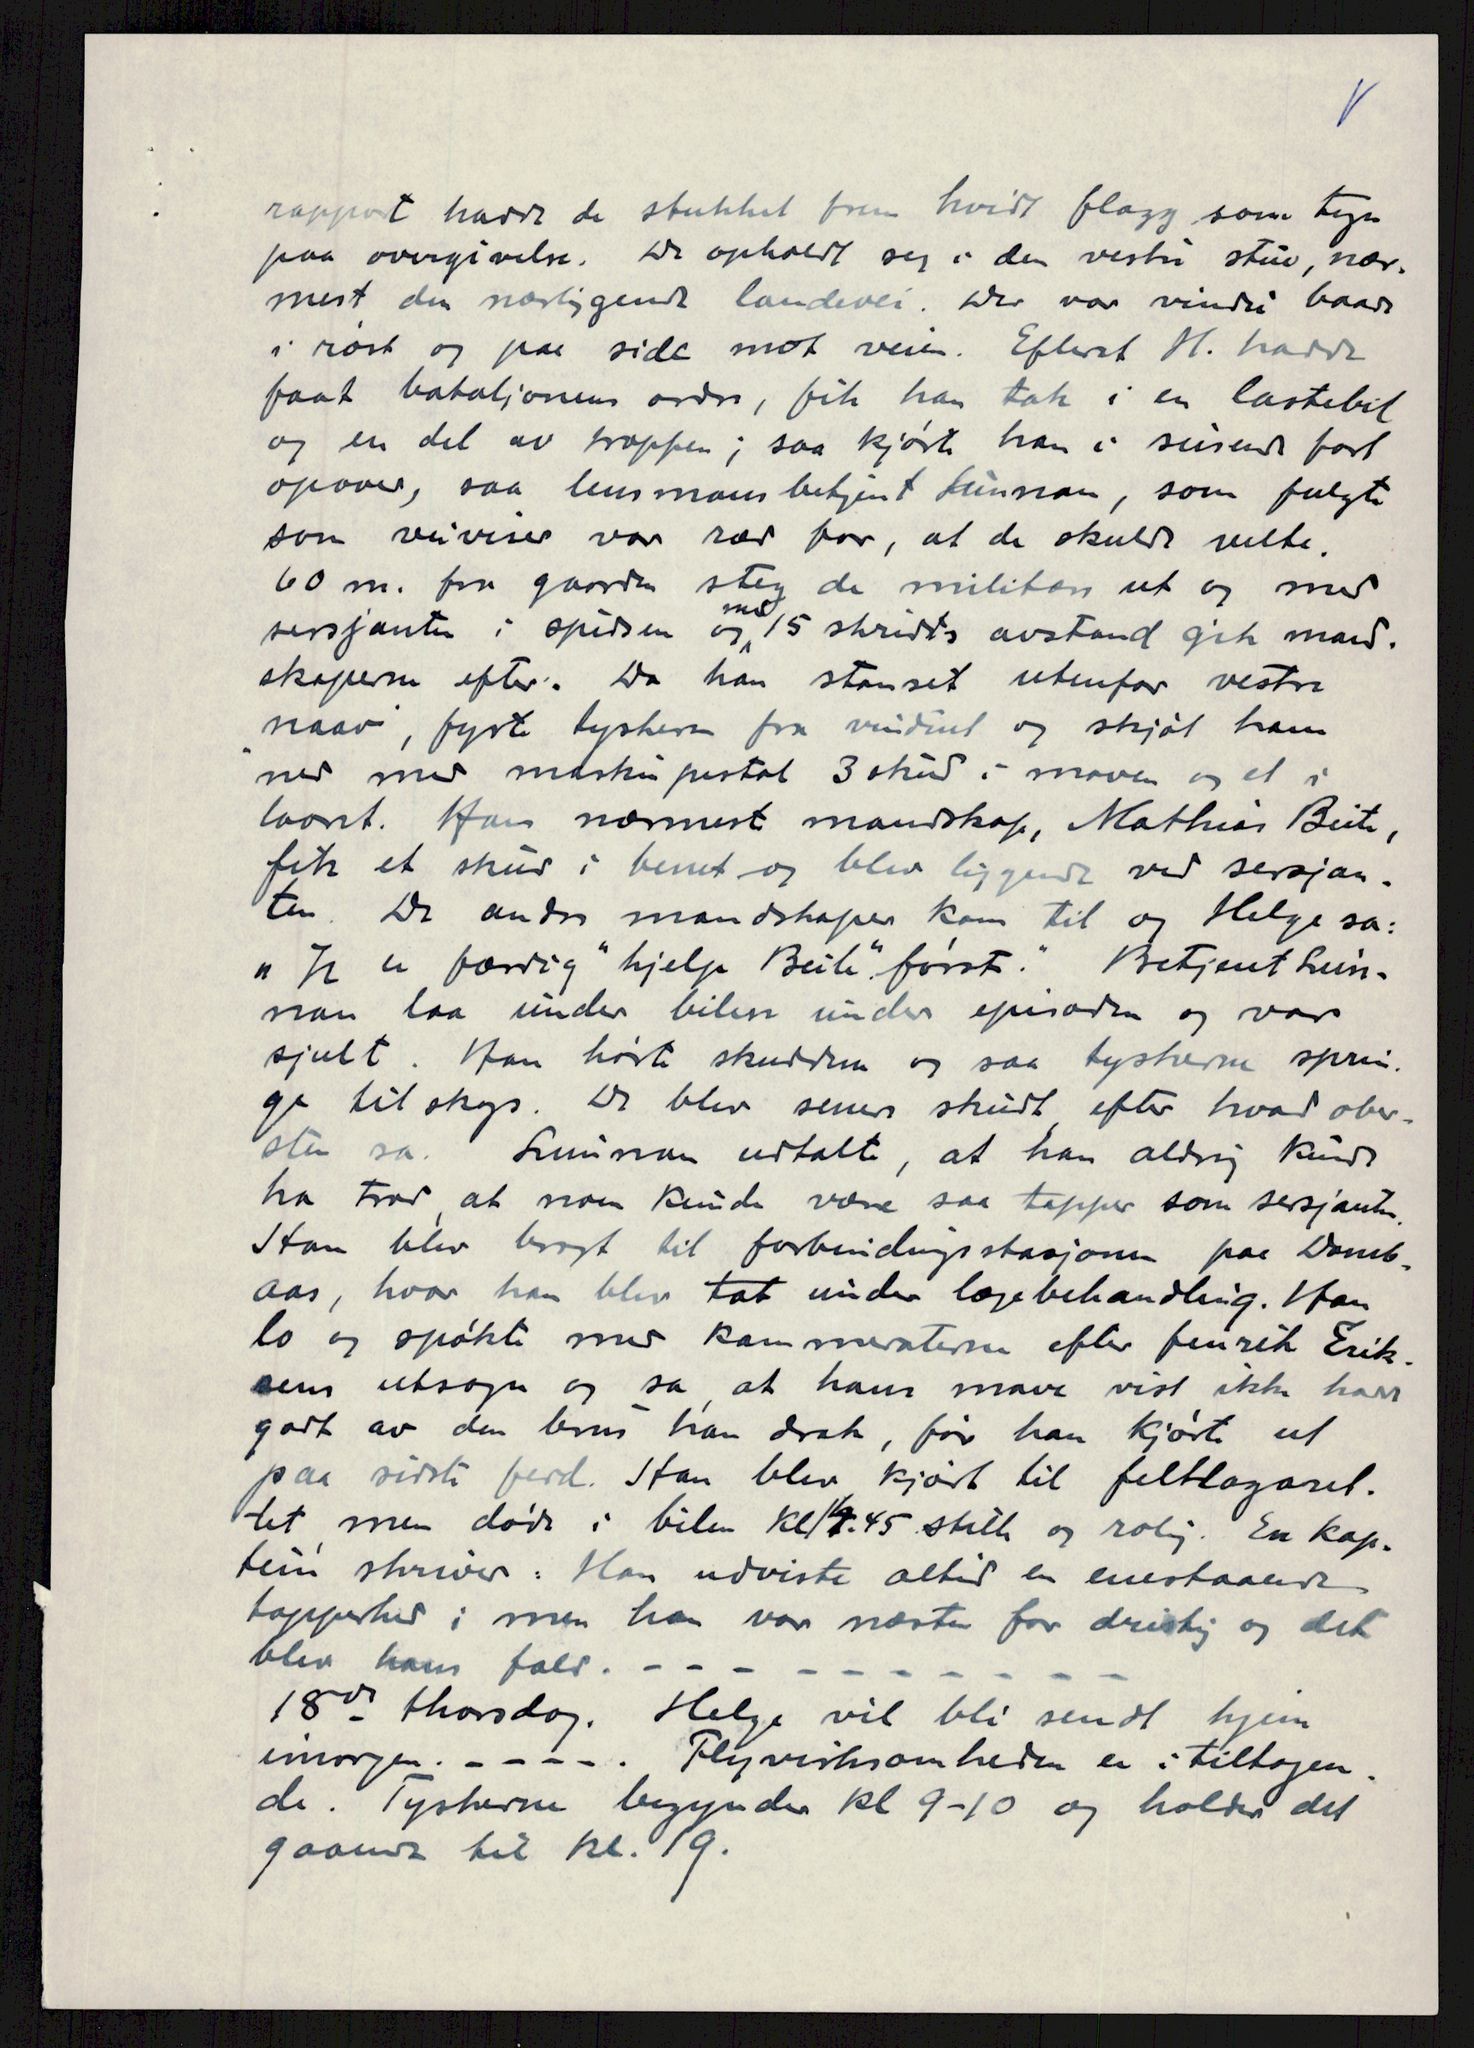 V
rapport hadde de stukket frem hvidt flagg som tegn
paa overgivelse. De opholdt seg i den vestre stue, nær-
mest den nærliggende landevei. Der var vindu baade
i røst og paa side mot veien. Efterat H. hadde
faat bataljonens ordre, fik han tak i en lastebil
og en del av troppen; saa kjørte han i susende fart
opover, saa lensmansbetjent Sunnan, som fulgte
som veiviser var ræd for, at de skulde velte.
60 m. fra gaarden steg de militære ut og med
sersjanten i spidsen og med 15 skridts avstand gik mand-
skaperne efter. Da han stanset utenfor vestre
naav, fyrte tyskerne fra vinduet og skjøt ham
ned med maskinpistol 3 skud i maven og et i
laaret. Hans nærmeste mandskap, Mathias Beite,
fik et skud i benet og blev liggende ved sersjan-
ten. De andre mandskaper kom til og Helge sa:
"Jeg er færdig" hjelp Beite" først." Betjent Sun-
nan laa under bilen under episoden og var
sjult. Han hørte skuddene og saa tyskerne sprin-
ge til skogs. De blev senere skudt, efter hvad ober-
sten sa. Sunnan udtalte, at han aldrig kunde
ha trod, at noen kunde være saa tapper som sersjanten.
Han blev bragt til forbindingsstasjonen paa Domb-
aas, hvor han blev tat under lægebehandling. Han
lo og spøkte med kammeraterne efter fenrik Erik-
sens utsagn og sa, at hans mave vist ikke hadde
godt av den brus han drak, før han kjørte ut
paa sidste ferd. Han blev kjørt til feltlasaret-
tet men døde i bilen kl 17.45 stille og rolig. En kap-
tein skriver: Han udviste altid en enestaaende
tapperhed; men han var næsten for dristig og det
blev hans fald. - - - - - - - - - - -
18de thorsdag. Helge vil bli sendt hjem
imorgen. - - - -. Flyvirksomheden er i tiltagen-
de. Tyskerne begynder kl 9-10 og holder det
gaaende til kl. 19.